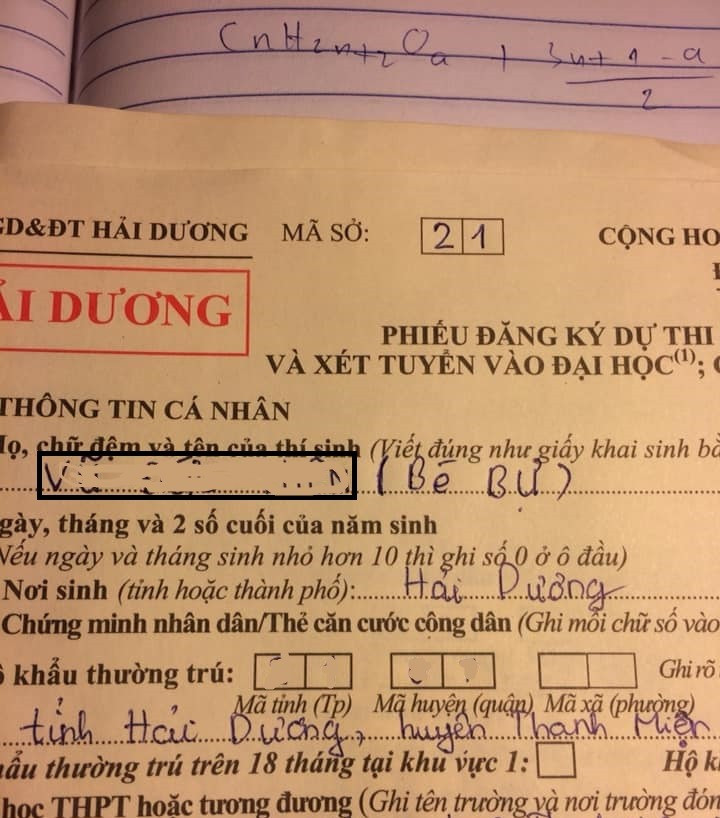 CnH2n+2Oa + 3n+1-a
2
GD&ĐT HẢI DƯƠNG MÃ SỞ: 21 CỘNG HO
ẢI DƯƠNG
PHIẾU ĐĂNG KÝ DỰ THI
VÀ XÉT TUYỂN VÀO ĐẠI HỌC(1);
THÔNG TIN CÁ NHÂN
Họ, chữ đệm và tên của thí sinh (Viết đúng như giấy khai sinh bằ
(Bé Bự)
gày, tháng và 2 số cuối của năm sinh
Nếu ngày và tháng sinh nhỏ hơn 10 thì ghi số 0 ở ô đầu)
Nơi sinh (tỉnh hoặc thành phố): Hải Dương
Chứng minh nhân dân/Thẻ căn cước công dân (Ghi mỗi chữ số vào
ộ khẩu thường trú: Ghi rõ
Mã tỉnh (Tp) Mã huyện (quận) Mã xã (phường)
tỉnh Hải Dương, huyện Thanh Miện
hẩu thường trú trên 18 tháng tại khu vực 1: Hộ k
học THPT hoặc tương đương (Ghi tên trường và nơi trường đón